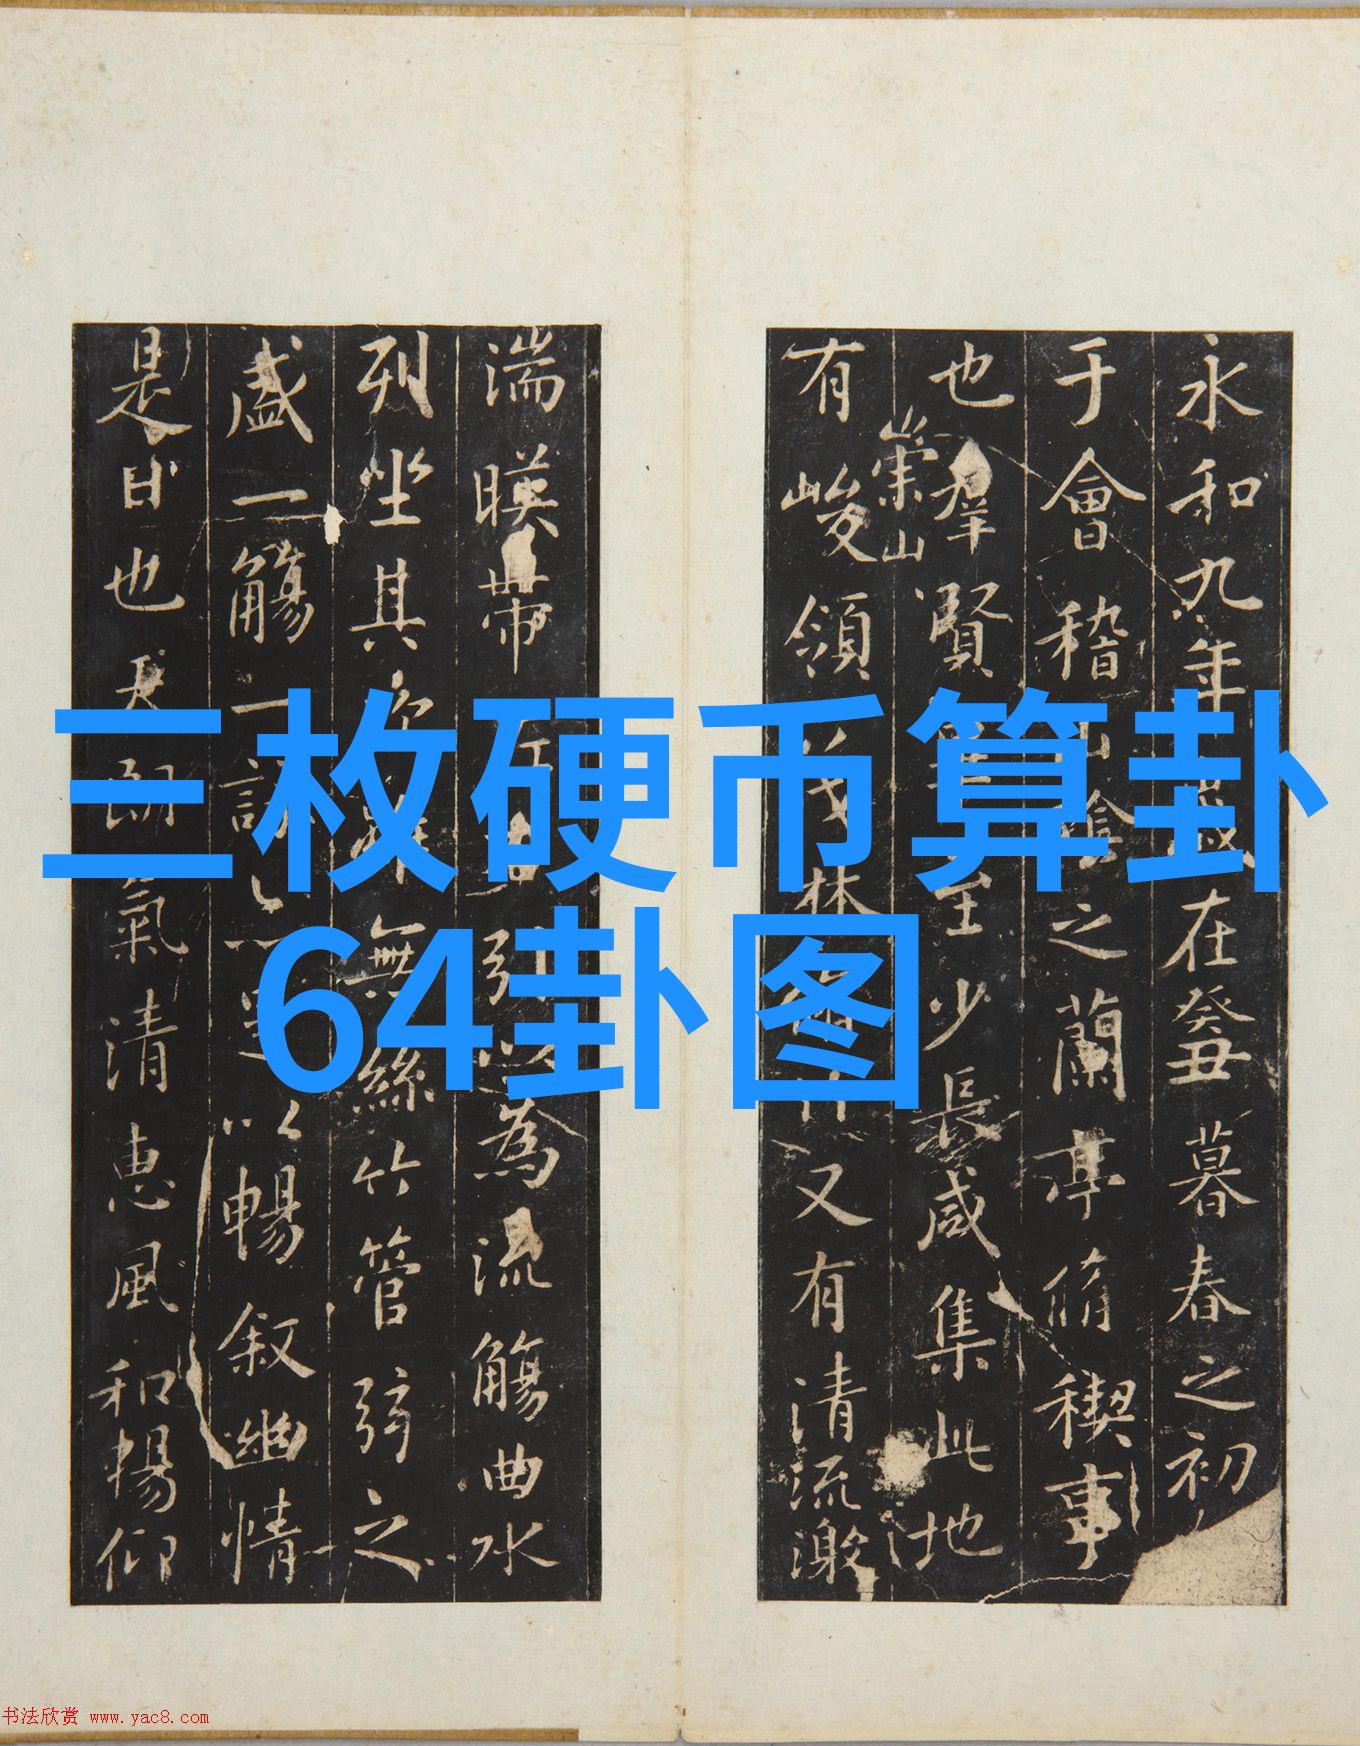 三枚硬币算卦
64卦图
永和九年歲在癸丑暮春之初
于會稽山陰之蘭亭脩稧事
也羣賢畢至少長咸集此地
崇山
有峻領茂林脩竹又有清流激
湍暎帶左右引以為流觴曲水
列坐其次雖無絲竹管弦之
盛一觴一詠亦足以暢敘幽情
是日也天朗氣清惠風和暢仰
书法欣赏 www.yac8.com